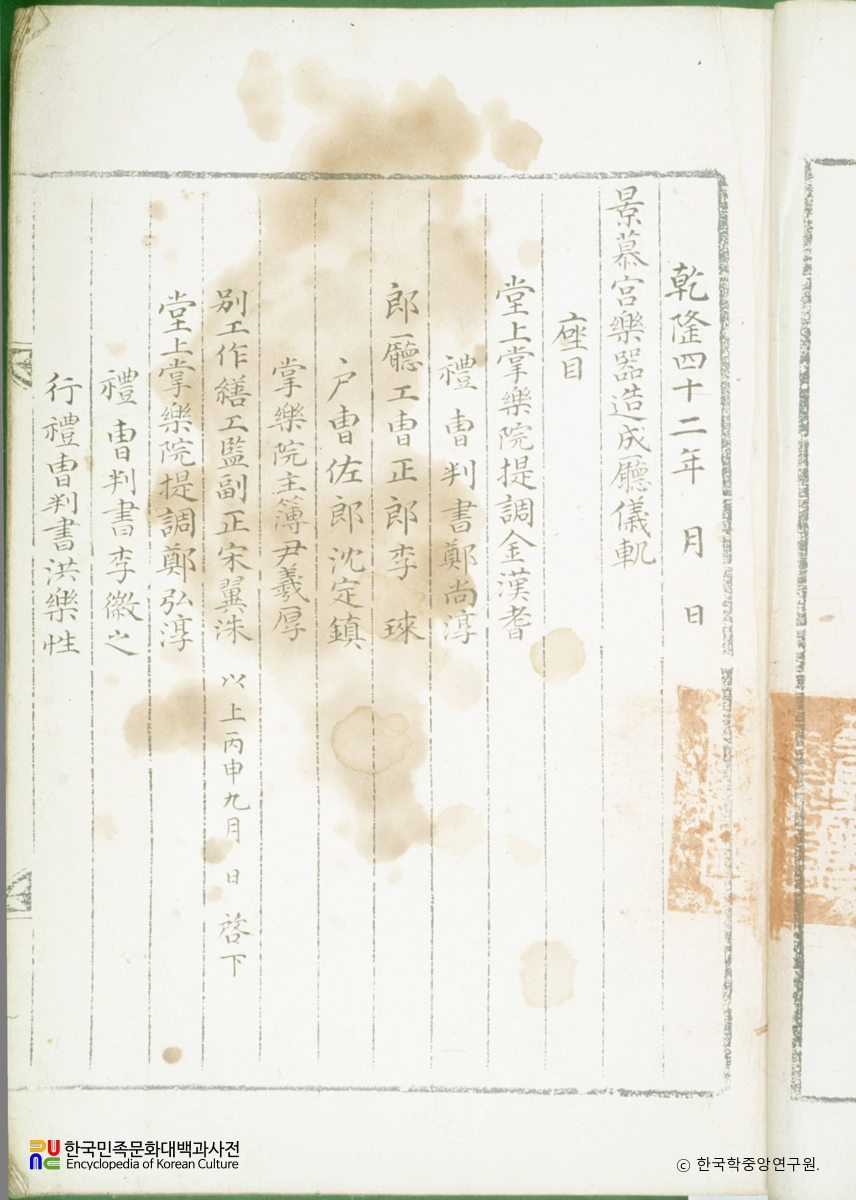 乾隆四十二年 月 日
景慕宮樂器造成廳儀軌
座目
堂上掌樂院提調金漢耆
禮曹判書鄭尚淳
郎廳工曹正郎李 琜
戶曹佐郎沈定鎮
掌樂院主簿尹羲厚
別工作繕工監副正宋翼洙 以上丙申九月 日 啓下
堂上掌樂院提調鄭弘淳
禮曹判書李徽之
行禮曹判書洪樂性
한국민족문화대백과사전
Encyclopedia of Korean Culture
© 한국학중앙연구원.